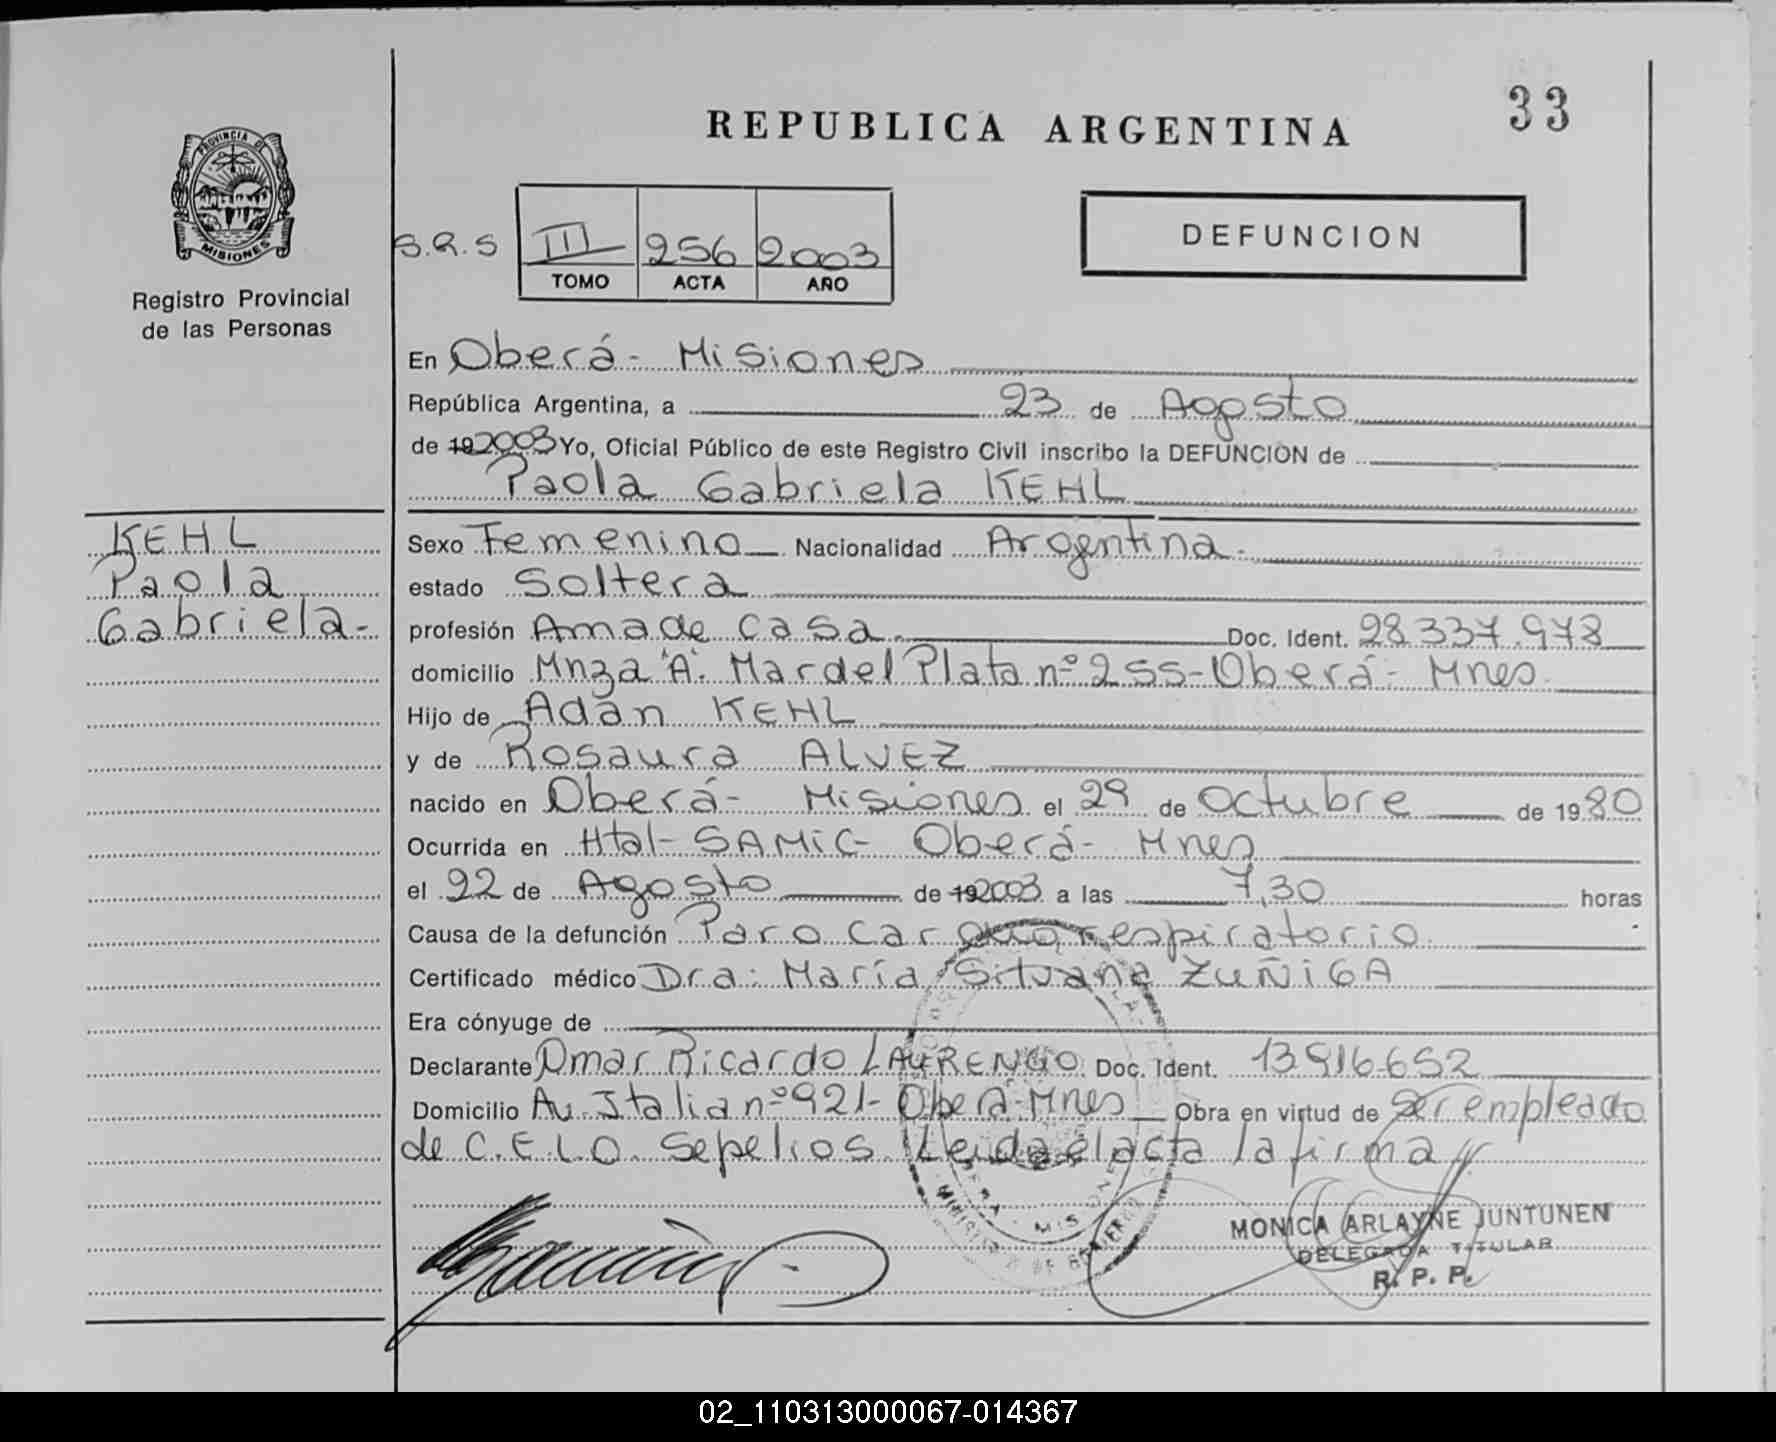 33
REPUBLICA ARGENTINA
PROVINCIA DE
MISIONES
Registro Provincial
de las Personas
S.R.S
III 256 2003
TOMO ACTA AÑO
DEFUNCION
En Oberá- Misiones
República Argentina, a 23 de Agosto
de 19 2003 Yo, Oficial Público de este Registro Civil inscribo la DEFUNCION de
Paola Gabriela KEHL
KEHL
Paola
Gabriela-
Sexo Femenino Nacionalidad Argentina.
estado Soltera
profesión Ama de casa. Doc. Ident. 28.337.978
domicilio Mnza "A". Mar del Plata nº 255-Oberá- Mnes.
Hijo de Adán KEHL
y de Rosaura ALVEZ
nacido en Oberá- Misiones el 29 de Octubre de 1980
Ocurrida en Htal- SAMIC- Oberá- Mnes
el 22 de Agosto de 19 2003 a las 7,30 horas
Causa de la defunción Paro cardiorespiratorio.
Certificado médico Dra: María Silvana ZUÑIGA
Era cónyuge de
Declarante Omar Ricardo LAURENCIO Doc. Ident. 13916652
Domicilio Av. Italia nº 921- Oberá- Mnes Obra en virtud de ser empleado
de C.E.L.O. Sepelios. Leida el acta la firma
MONICA ARLAYNE JUNTUNEN
DELEGADA TITULAR
R. P. P.
02_110313000067-014367